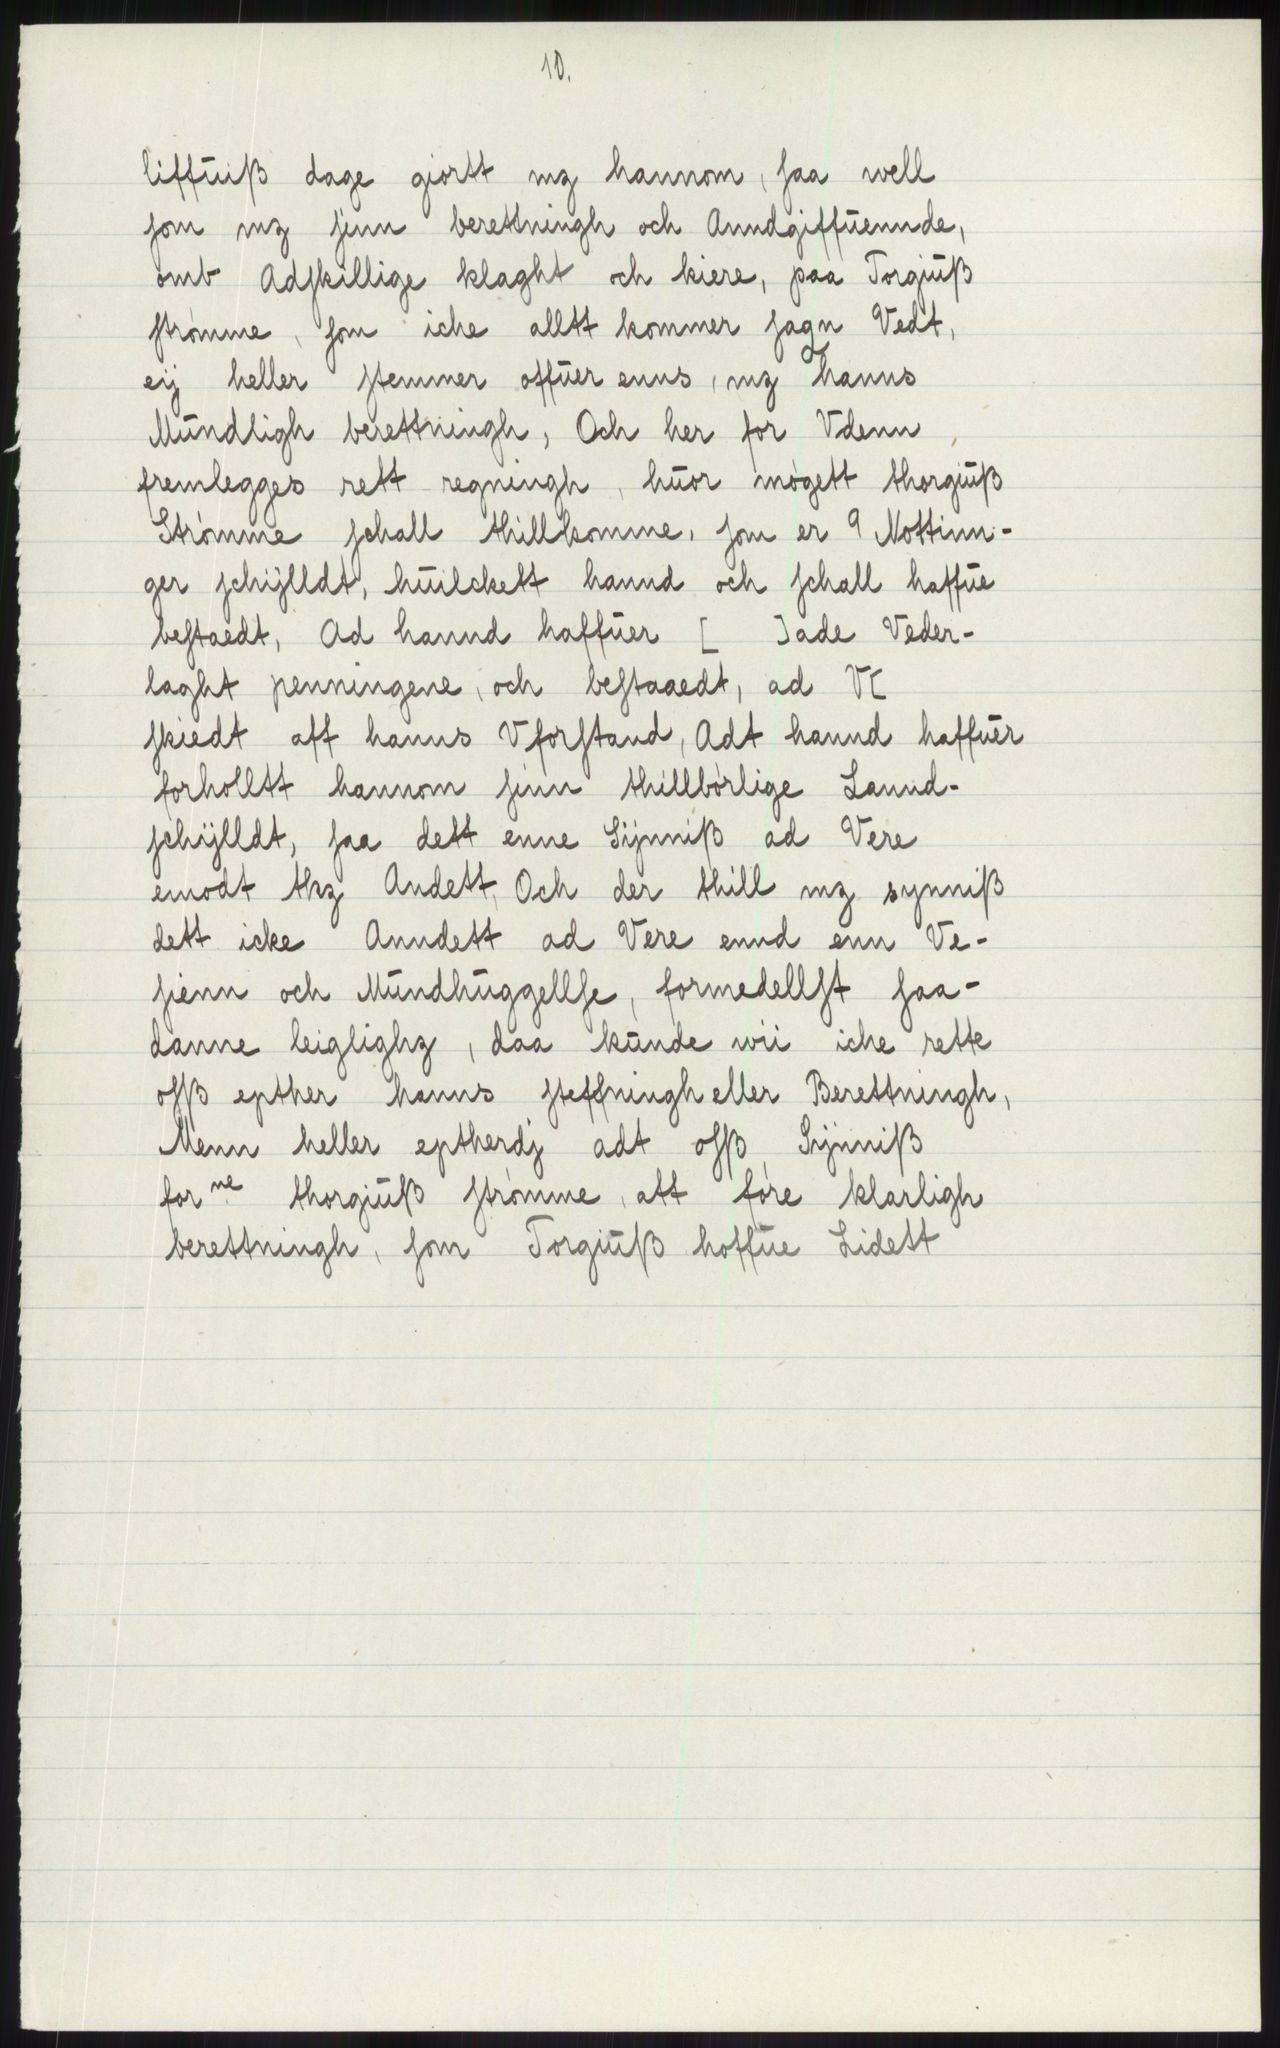 10.
liffuiß dage giortt mz hannom, saa well
som mz sinn berettningh och Anndgiffuennde,
omb Adskillige klaght och kiere, paa Torgiuß
strømme, som iche alltt kommer sagn Vedt,
eij heller stemmer offuer enns, mz hanns
Mundligh berettningh, Och her for Vdenn
fremlegges rett regningh, huor møgett thorgiuß
Strømme schall thillkomme, som er 9 Nottinn-
ger schijlldt, huilckett hannd och schall haffue
bestaedt, Ad hannd haffuer [    ]ade Veder-
laght penningene, och bestaaedt, ad V[
skiedt aff hanns Vforstand, Adt hannd haffuer
forholltt hannom sinn thillbørlige Lannd-
schijlldt, saa dett enne Sijnniß ad Vere
emodt thz Andett, Och der thill mz synniß
dett icke Anndett ad Vere ennd enn Ve-
sienn och Mundhuggellse, formedellst saa-
danne leiglighz, daa kunde wii iche rette
osß epther hanns steffningh eller Berettningh,
Menn heller eptherdj adt osß Sijnniß
for ne thorgiuß strømme, att føre klarligh
berettningh, som Torgiuß hoffue Lidett